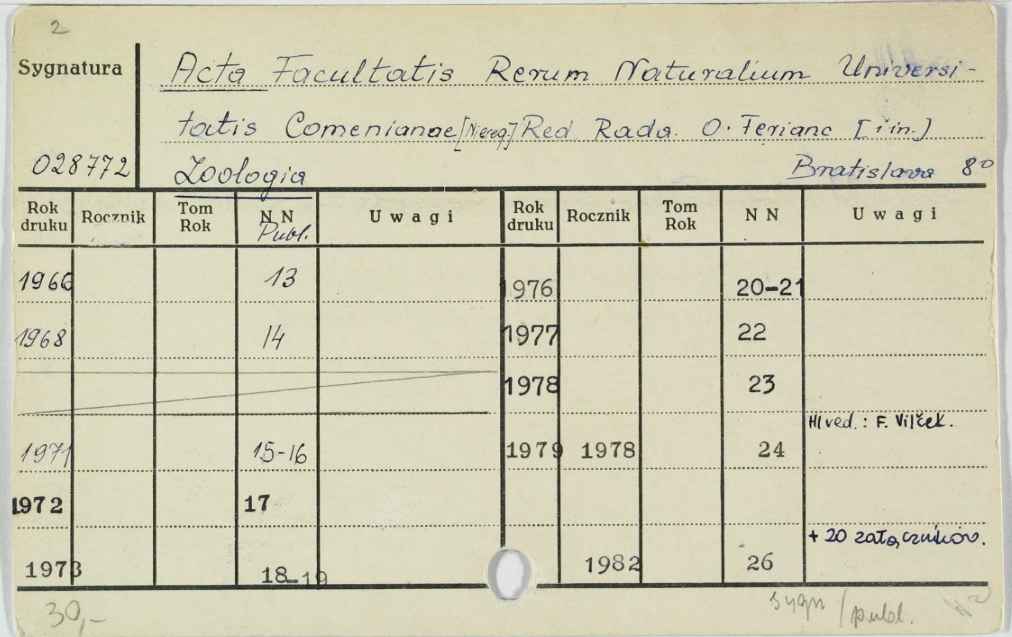 2
Sygnatura
Acta Facultatis Rerum Naturalium Universi-
tatis Comenianae [Niereg.] Red. Rada. O. Ferianc [i in.]
028772 Zoologia Bratislava 8°
Rok druku Rocznik Tom Rok NN Publ. Uwagi Rok druku Rocznik Tom Rok NN Uwagi
1966 13 1976 20-21
1968 14 1977 22
1978 23
Hl ved.: F. Vilček.
1971 15-16 1979 1978 24
1972 17
+ 20 załączników.
1973 18-19 1982 26
30,- sygn / publ.